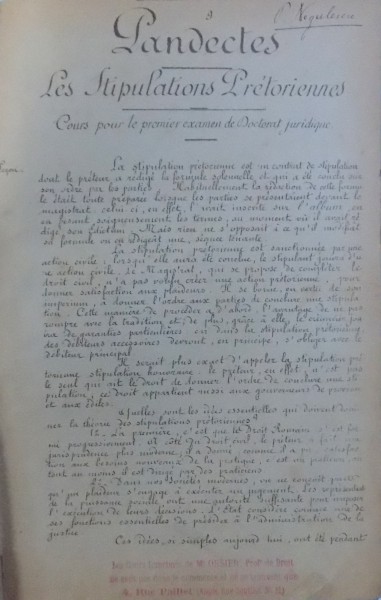 P. Negulescu
Pandectes
Les Stipulations Prétoriennes
Cours pour le premier examen de Doctorat juridique
La stipulation prétorienne est un contrat de stipulation
dont le préteur a rédigé la formule solennelle et qui a été conclu sur
son ordre par les parties. Habituellement la rédaction de cette formule
était toute préparée lorsque les parties se présentaient devant le
magistrat. celui-ci, en effet, l'avait inscrite sur l'album en
en pesant soigneusement les termes, au moment où il avait ré-
digé son Edictum. Mais rien ne s'opposait à ce qu'il modifiât
sa formule ou en rédigeât une, séance tenante.
La stipulation prétorienne est sanctionnée par une
action civile; lorsqu'elle aura été conclue, le stipulant jouira d'u-
ne action civile. Le Magistrat, qui se propose de compléter le
droit civil, n'a pas voulu créer une action prétorienne, pour
donner satisfaction aux plaideurs. Il se borne, en vertu de son
imperium, à donner l'ordre aux parties de conclure une stipula-
tion. Cette manière de procéder a d'abord l'avantage de ne pas
rompre avec la tradition et, de plus, grâce à elle, le créancier jou-
ira de garanties particulières: en dans la stipulation prétorienne
des débiteurs accessoires devront, en principe, s'obliger avec le
débiteur principal.
Il serait plus exact d'appeler la stipulation pré-
torienne stipulation honoraire: le préteur, en effet, n'est pas
le seul qui ait le droit de donner l'ordre de conclure une sti-
pulation; ce droit appartient aussi aux gouverneurs de province
et aux édiles.
Quelles sont les idées essentielles qui doivent domi-
ner la théorie des stipulations prétoriennes?
1º. La première, c'est que le Droit Romain s'est for-
mé progressivement. A côté du droit civil, le préteur a fait une
jurisprudence plus moderne; il a donné, comme il a pu, satisfac-
tion aux besoins nouveaux de la pratique;
tout au moins il est
2º. Dans nos sociétés modernes, on ne conçoit pas
qu'un plaideur s'engage à exécuter un jugement, les représentants
de la puissance publique ont une autorité suffisante pour imposer
l'exécution de leurs décisions. L'Etat considère comme une de
ses fonctions essentielles de présider à l'administration de la
justice.
Ces idées, si simples aujourd'hui, ont été pendant
4, Rue Paillet